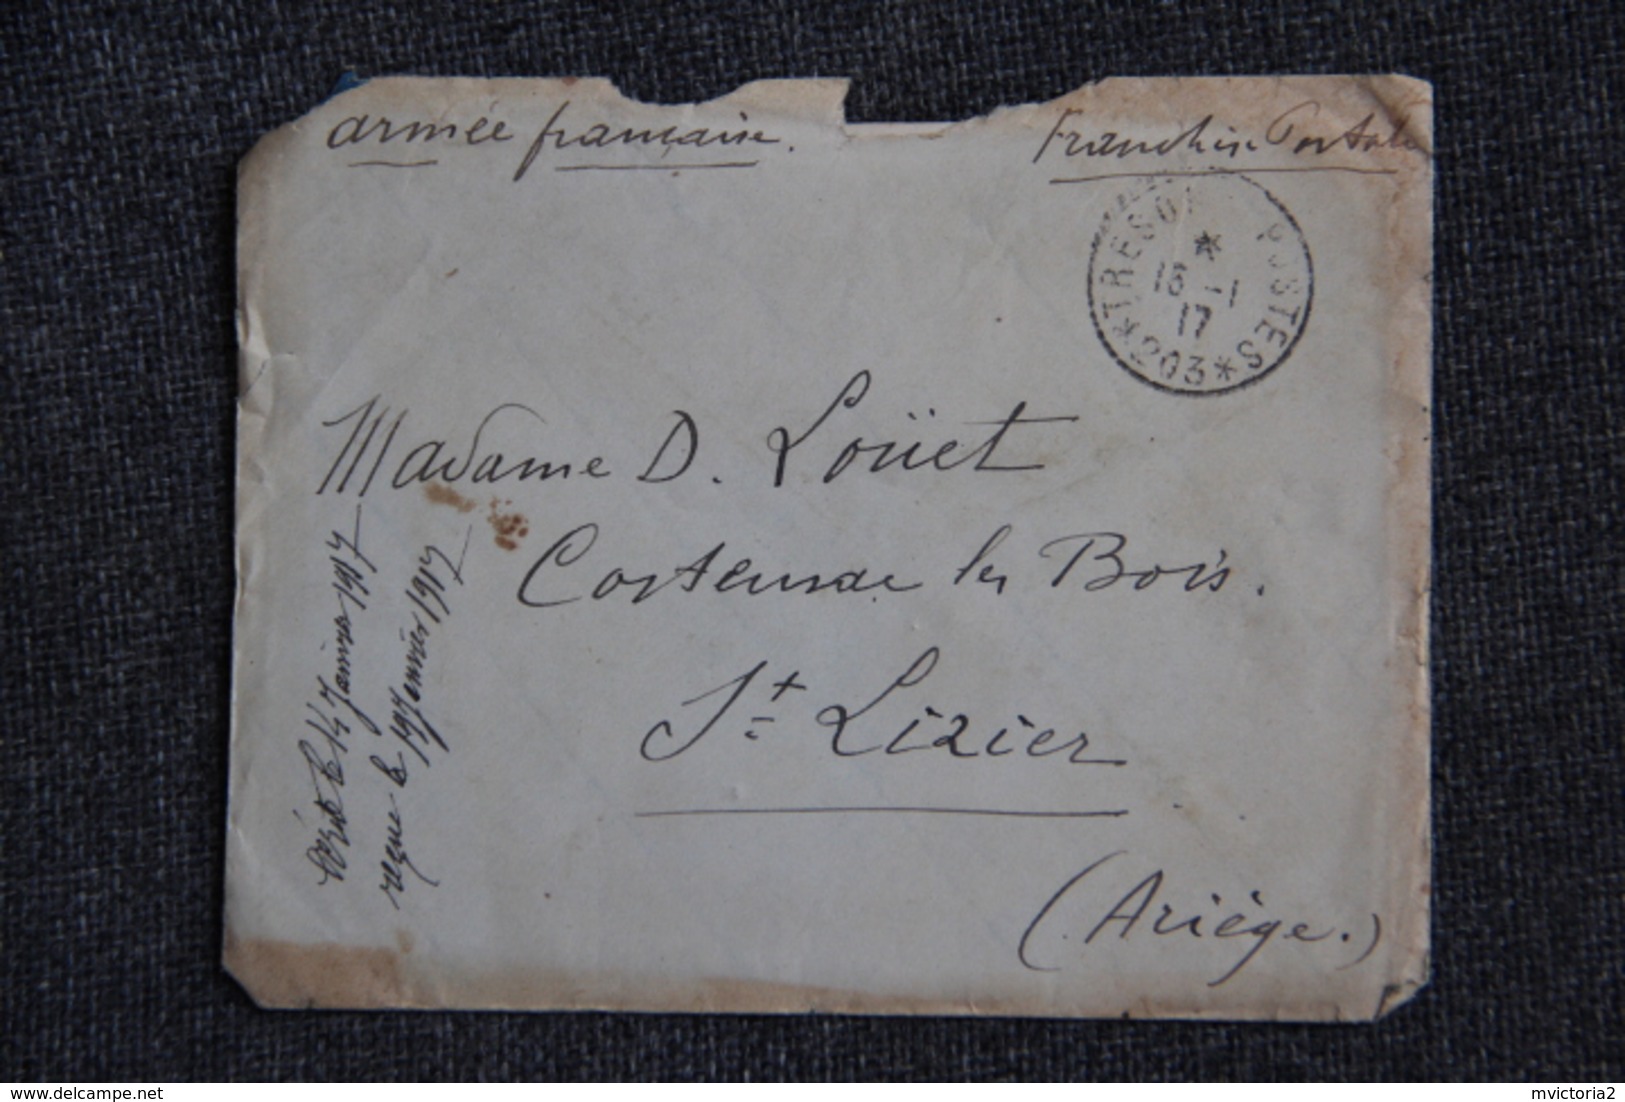 armée française.
Franchise Postale
TRESOR POSTES
*
16 -1
17
*203*
Madame D. Loüet
les Bois.
St Lizier
(Ariège.)
le 14 Janvier 1917
reçue le 19 Janvier 1917
delcampe.net
mvictoria2